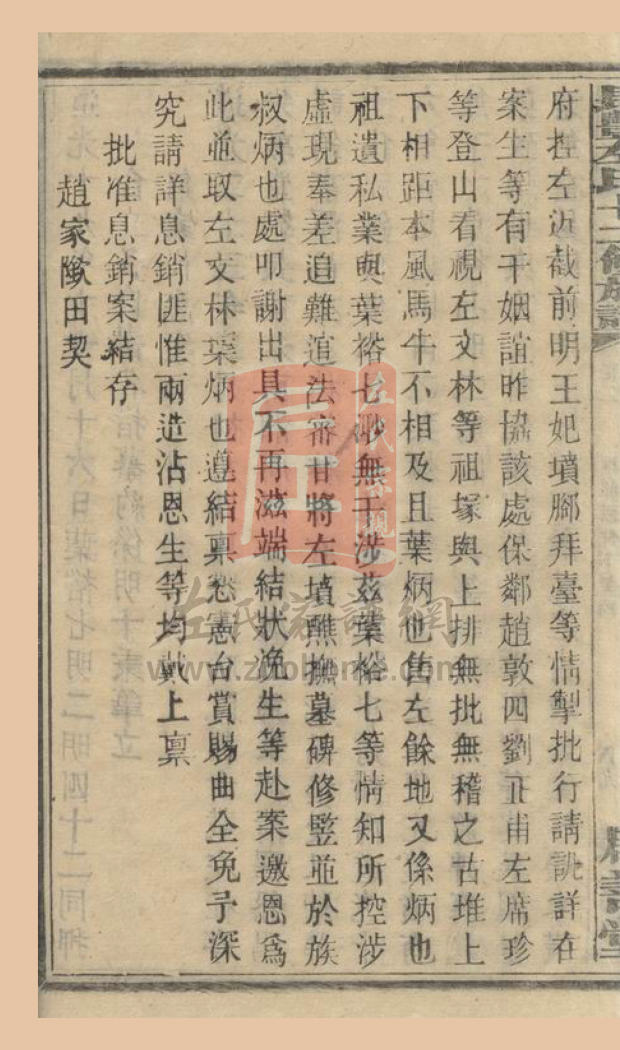 府控左近截前明王妃墳腳拜臺等情掣批行請訛詳在
案生等有干姻誼昨協該處保鄰趙敦四劉正甫左席珍
等登山看視左文林等祖塚與上排無批無稽之古堆上
下相距本風馬牛不相及且葉炳也售左餘地又係炳也
祖遺私業與葉裕七渺無干涉茲葉裕七等情知所控涉
虛現奉差追難逭法審甘將左墳醮撫墓碑修竪並於族
叔炳也處叩謝出具不再滋端結狀浼生等赴案邀恩爲
此並取左文林葉炳也遵結禀懇憲台賞賜曲全免予深
究請詳息銷匪惟兩造沾恩生等均戴上禀
批准息銷案結存
趙家隞田契
左氏十二修族譜
左氏家譜網